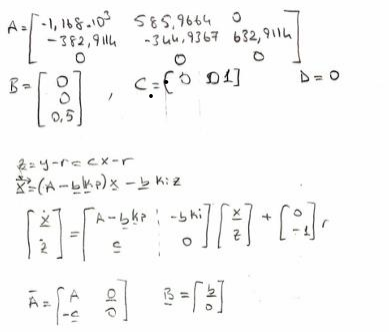 A = [-1,168.10³ 585,9664 0
-382,9114 -344,9367 632,9114
0 0 0]
B = [0
0
0,5] , C = [0 0 1] D = 0
ż = y-r = cx-r
ẋ = (A-bkp)x - bkiz
[ẋ
ż] = [A-bkp -bki
c 0] [x
z] + [0
-1] r
Ā = [A 0
-c 0] B = [b
0]